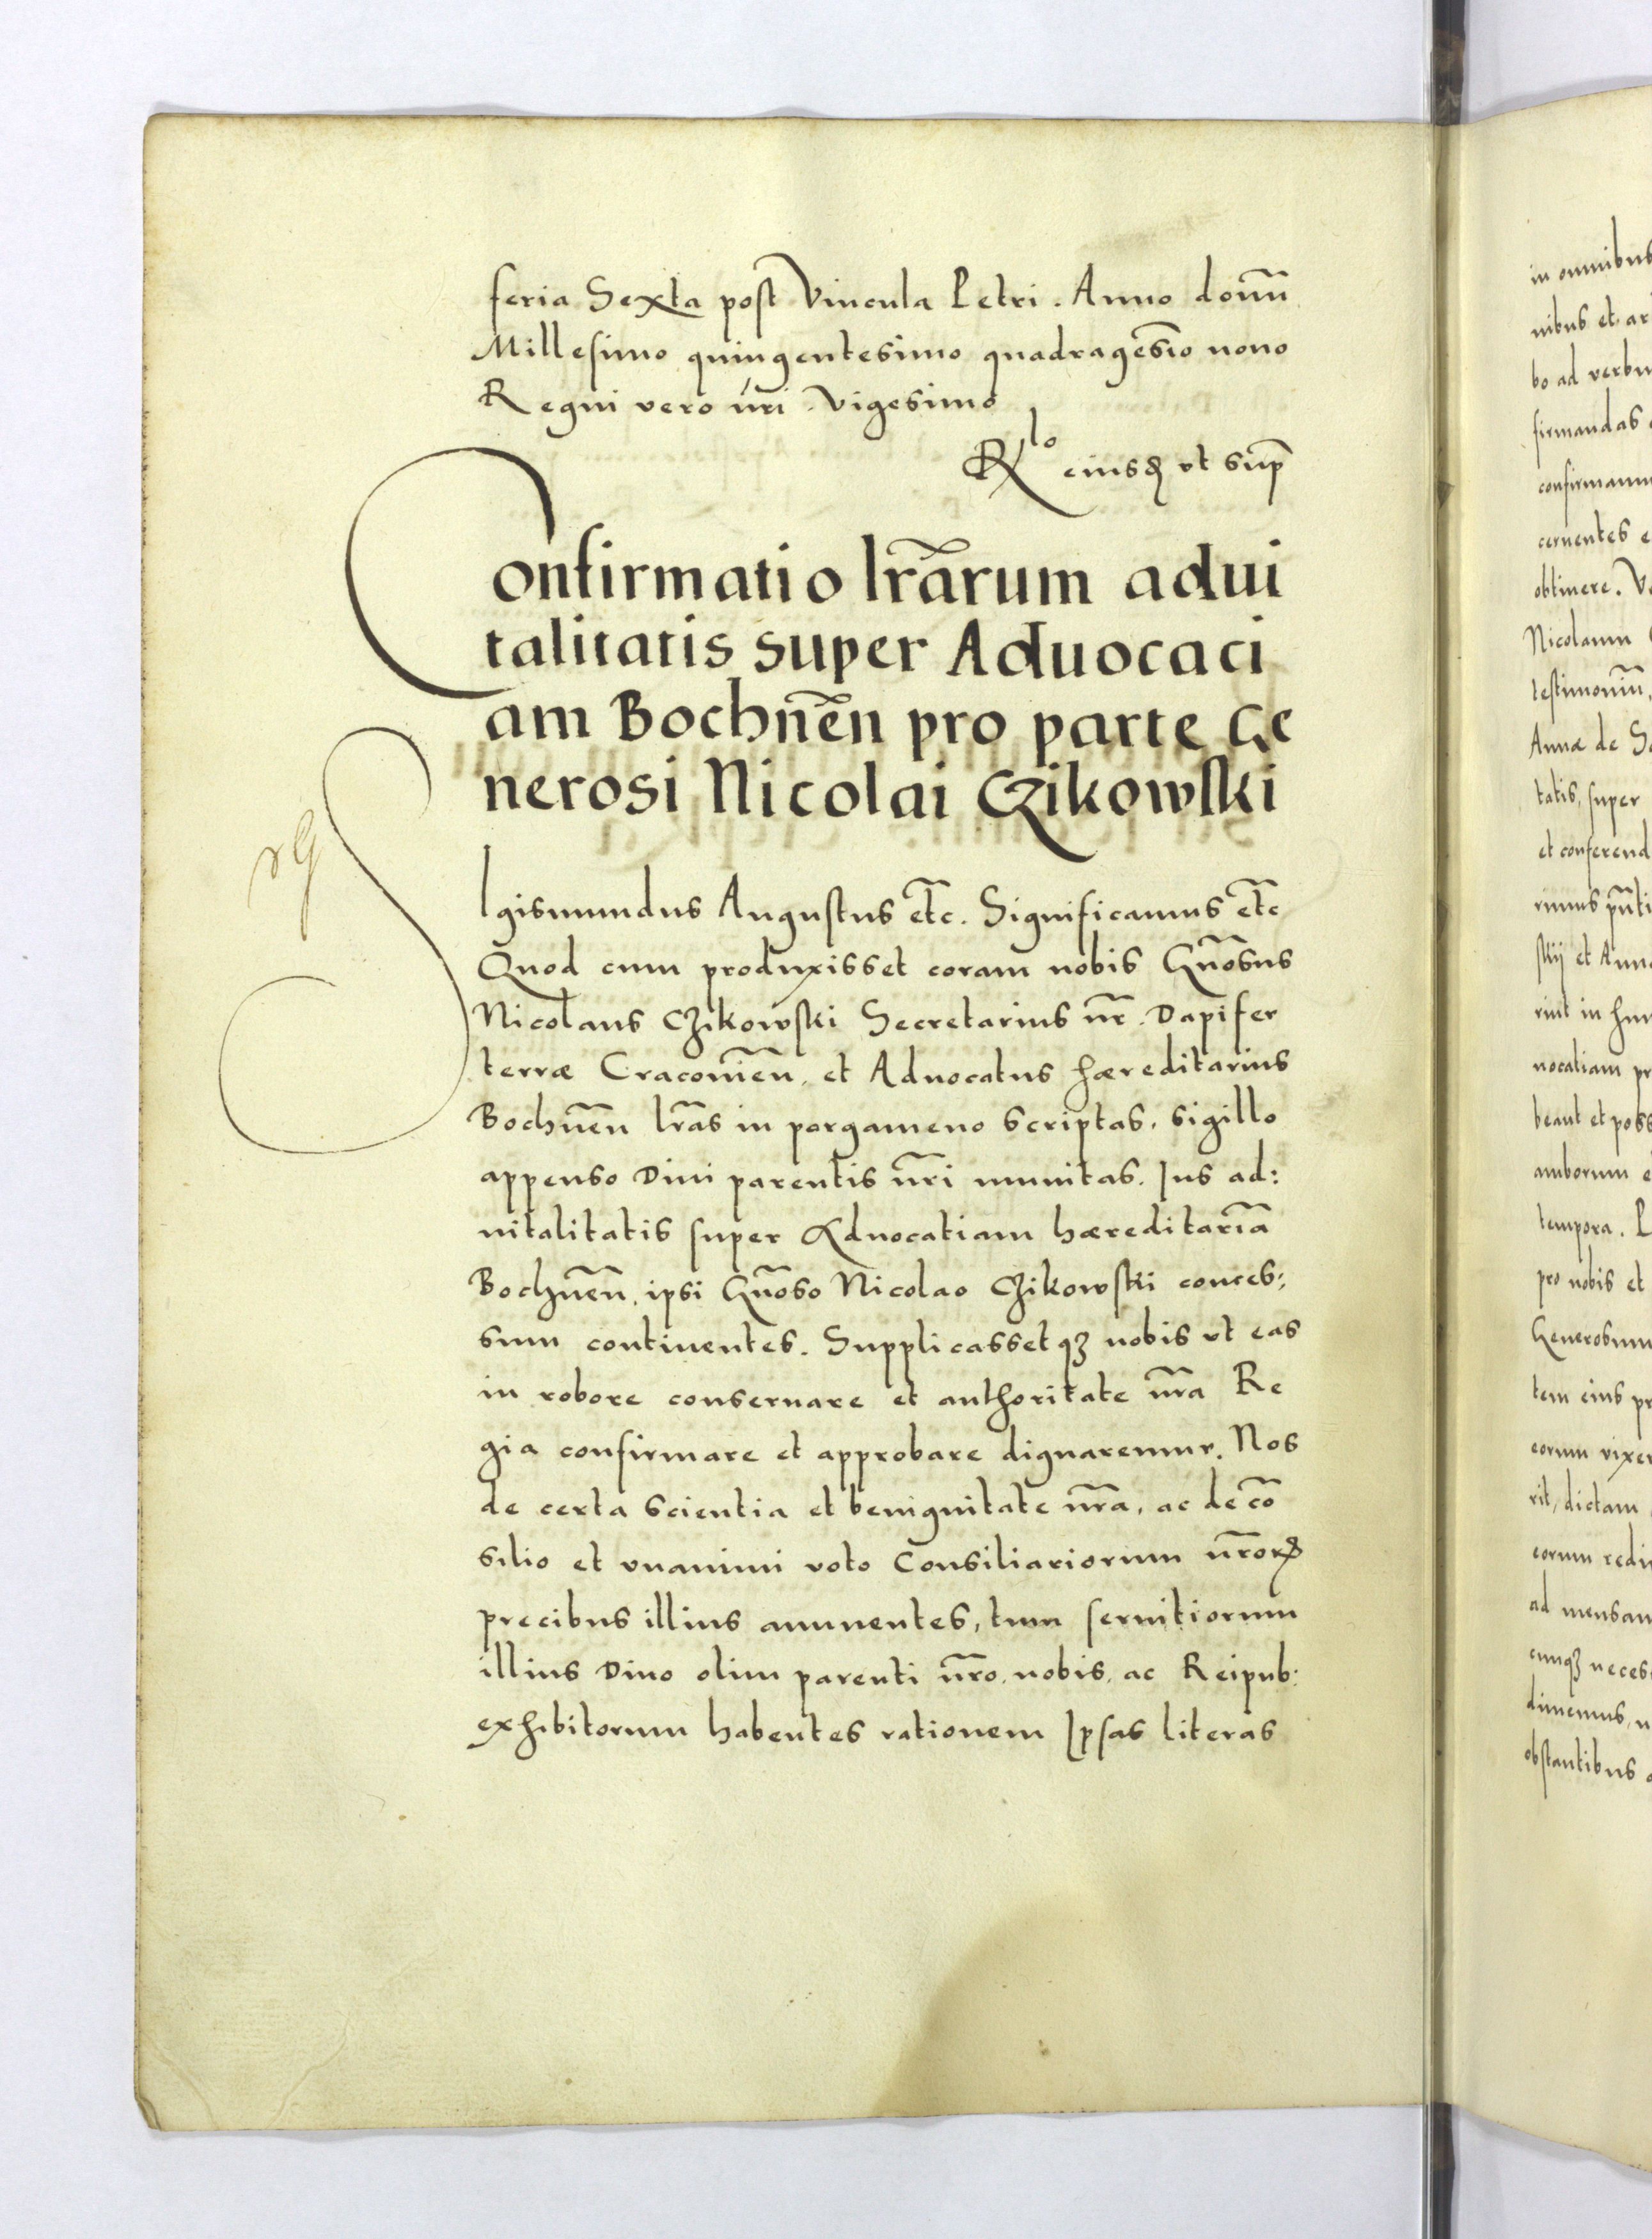 feria Sexta post Vincula Petri. Anno domī
Millesimo quingentesimo quadragēsīo nono
Regni vero nr̄i. Vigesimo
Rlo eiusdꝫ vt sup̄
Confirmatio lr̄arum adui
talitatis super Aduocaci
am Bochnēn pro parte Ge
nerosi Nicolai Czikowski
Sigismundus Augustus etc̄. Significamus etc̄
Quod cum produxisset coram nobis Gn̄osus
Nicolaus Czikowski Secretarius nr̄. Dapifer
terræ Cracovien̄. et Aduocatus hæreditarius
Bochnēn lr̄as in pargameno scriptas, sigillo
appenso Diui parentis nr̄i munitas. Ius ad:
uitalitatis super Aduocatiam hæreditariā
Bochnēn. ipsi Gn̄oso Nicolao Czikowski conces:
sum continentes. Supplicassetqꝫ nobis vt eas
in robore conseruare et authoritate nr̄a Re
gia confirmare et approbare dignaremur. Nos
de certa scientia et benignitate nr̄a, ac de cō
silio et vnanimi voto Consiliariorum nr̄orꝝ
precibus illius annuentes, tum seruitiorum
illius Diuo olim parenti nr̄o. nobis, ac Reipub:
exhibitorum habentes rationem Ipsas literas
in omnibus
nibus et ar
bo ad verbu
firmandas
confirmamu
cernentes e
obtinere. V
Nicolaum
testimoniū,
Annæ de S
tatis, super
et conferend
rimus pn̄ti
skij et Anna
rint in hu
uocatiam pr
beant et poss
amborum e
tempora. P
pro nobis et
Generosum
tem eius pr
eorum vixer
rit, dictam
eorum redi
ad mensam
cunqꝫ neces
dimemus, n
obstantibus